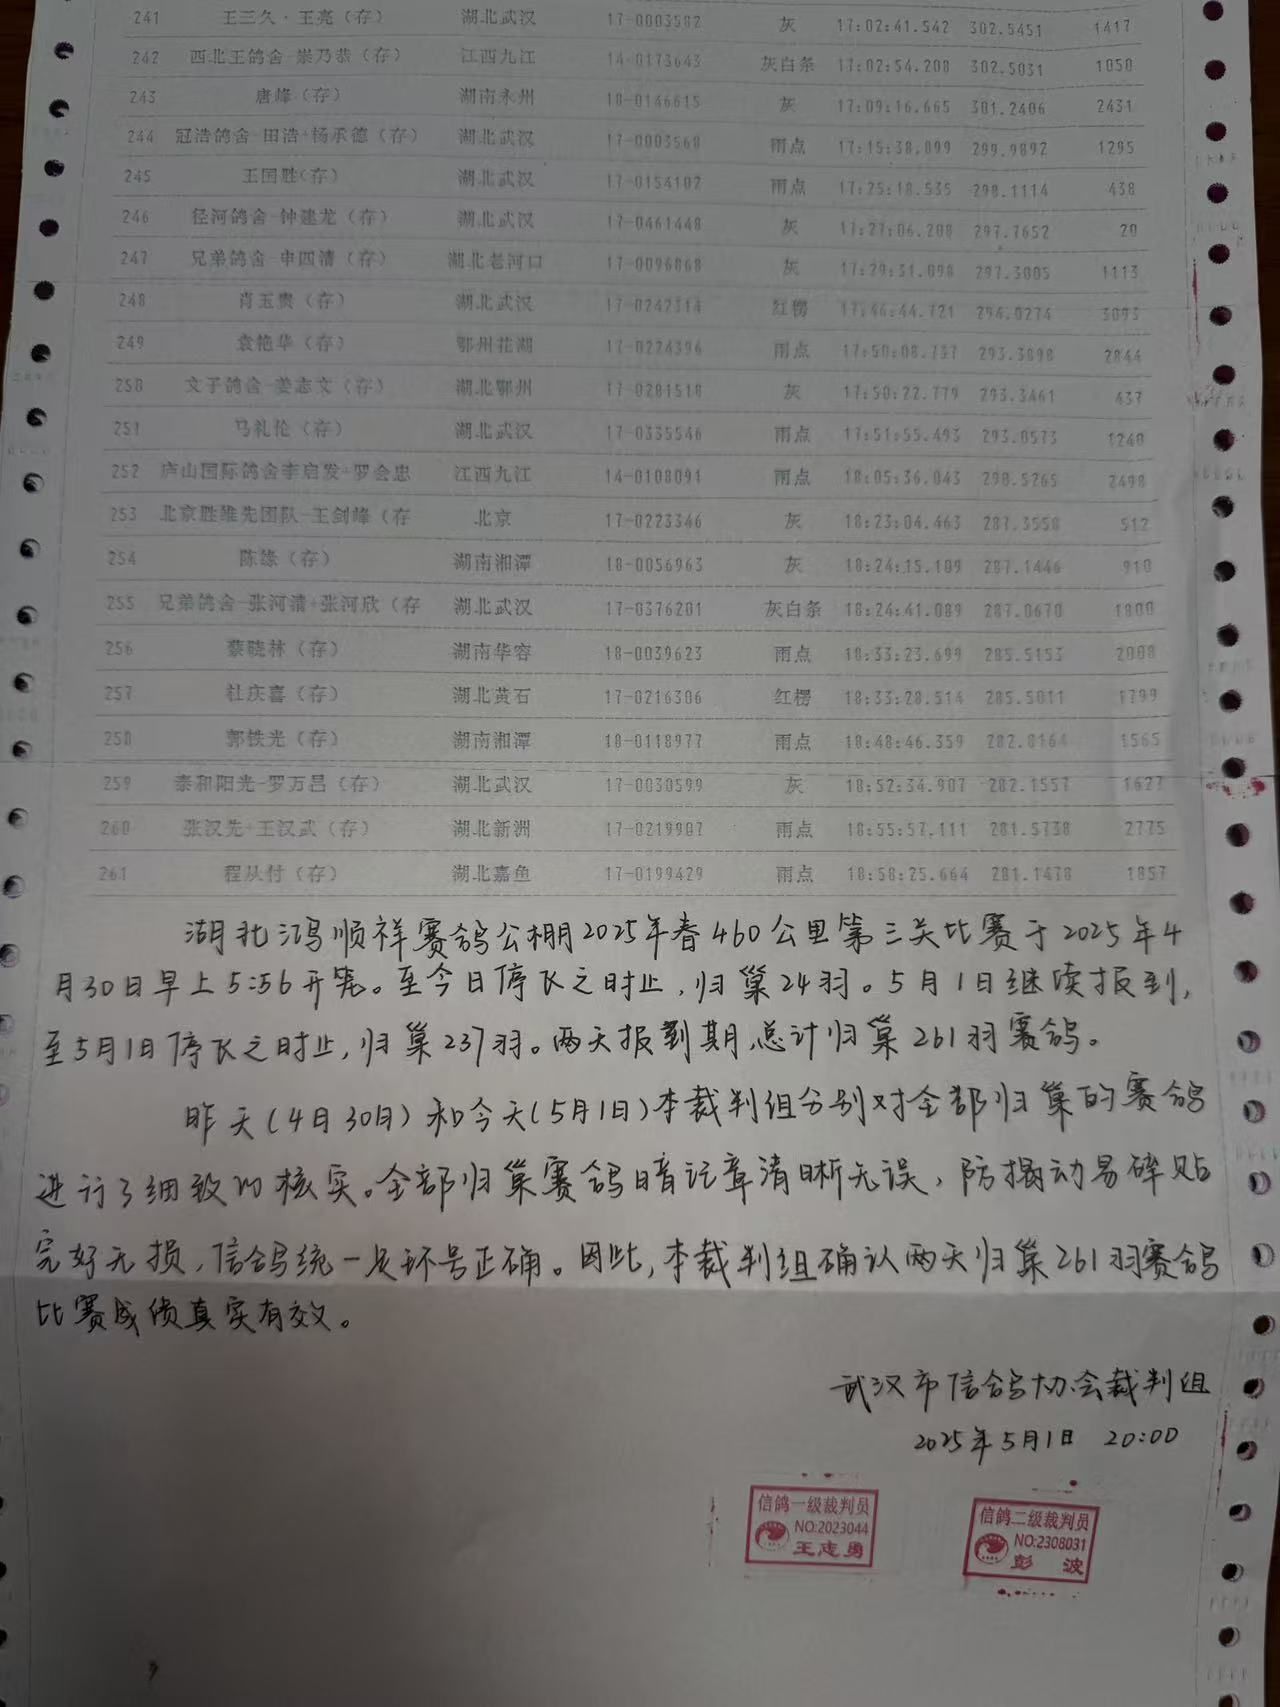 241 王三久·王亮（存） 湖北武汉 17-0003582 灰 17:02:41.542 302.5451 1417
242 西北王鸽舍-崇乃恭（存） 江西九江 14-0173643 灰白条 17:02:54.208 302.5031 1050
243 唐峰（存） 湖南永州 18-0146615 灰 17:09:16.665 301.2406 2431
244 冠浩鸽舍-田浩+杨承德（存） 湖北武汉 17-0003568 雨点 17:15:38.099 299.9892 1295
245 王国胜(存) 湖北武汉 17-0154102 雨点 17:25:18.535 298.1114 438
246 径河鸽舍-钟建龙（存） 湖北武汉 17-0461448 灰 17:27:06.208 297.7652 20
247 兄弟鸽舍-申四清（存） 湖北老河口 17-0096868 灰 17:29:31.098 297.3005 1113
248 肖玉贵（存） 湖北武汉 17-0242314 红楞 17:46:44.721 294.0274 3093
249 袁艳华（存） 鄂州花湖 17-0224396 雨点 17:50:08.737 293.3898 2844
250 文子鸽舍-姜志文（存） 湖北鄂州 17-0281518 灰 17:50:22.779 293.3461 437
251 马礼伦（存） 湖北武汉 17-0335546 雨点 17:51:55.493 293.0573 1240
252 庐山国际鸽舍李启发+罗会忠 江西九江 14-0108091 雨点 18:05:36.043 290.5265 2498
253 北京胜雄先团队-王剑峰（存 北京 17-0223346 灰 18:23:04.463 287.3558 512
254 陈缘（存） 湖南湘潭 18-0056963 灰 18:24:15.109 287.1446 910
255 兄弟鸽舍-张河清+张河欣（存 湖北武汉 17-0376201 灰白条 18:24:41.089 287.0670 1800
256 蔡晓林（存） 湖南华容 18-0039623 雨点 18:33:23.699 285.5153 2008
257 杜庆喜（存） 湖北黄石 17-0216306 红楞 18:33:28.514 285.5011 1799
258 郭铁光（存） 湖南湘潭 18-0118977 雨点 18:48:46.359 282.8164 1565
259 泰和阳光-罗万昌（存） 湖北武汉 17-0030599 灰 18:52:34.907 282.1557 1627
260 张汉先+王汉武（存） 湖北新洲 17-0219907 雨点 18:55:57.111 281.5738 2775
261 程从付（存） 湖北嘉鱼 17-0199429 雨点 18:58:25.664 281.1478 1857
湖北鸿顺祥赛鸽公棚2025年春460公里第三关比赛于2025年4
月30日早上5:56开笼。至今日停飞之时止，归巢24羽。5月1日继续报到，
至5月1日停飞之时止，归巢237羽。两天报到期，总计归巢261羽赛鸽。
昨天(4月30日)和今天(5月1日)本裁判组分别对全部归巢的赛鸽
进行了细致的核实。全部归巢赛鸽暗记章清晰无误，防揭动易碎贴
完好无损，信鸽统一足环号正确。因此，本裁判组确认两天归巢261羽赛鸽
比赛成绩真实有效。
武汉市信鸽协会裁判组
2025年5月1日 20:00
信鸽一级裁判员
NO:2023044
王志勇
信鸽二级裁判员
NO:2308031
彭 波